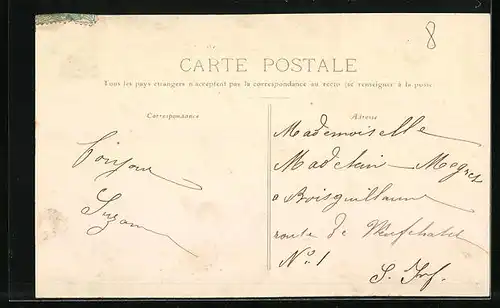 8
CARTE POSTALE
Tous les pays étrangers n'acceptent pas la correspondance au recto (se renseigner à la poste)
Correspondance
Adresse
bonjour
Suzanne
Mademoiselle
Madelein
a Boisguillaume
route de Neufchatel
N° 1
S. Inf.